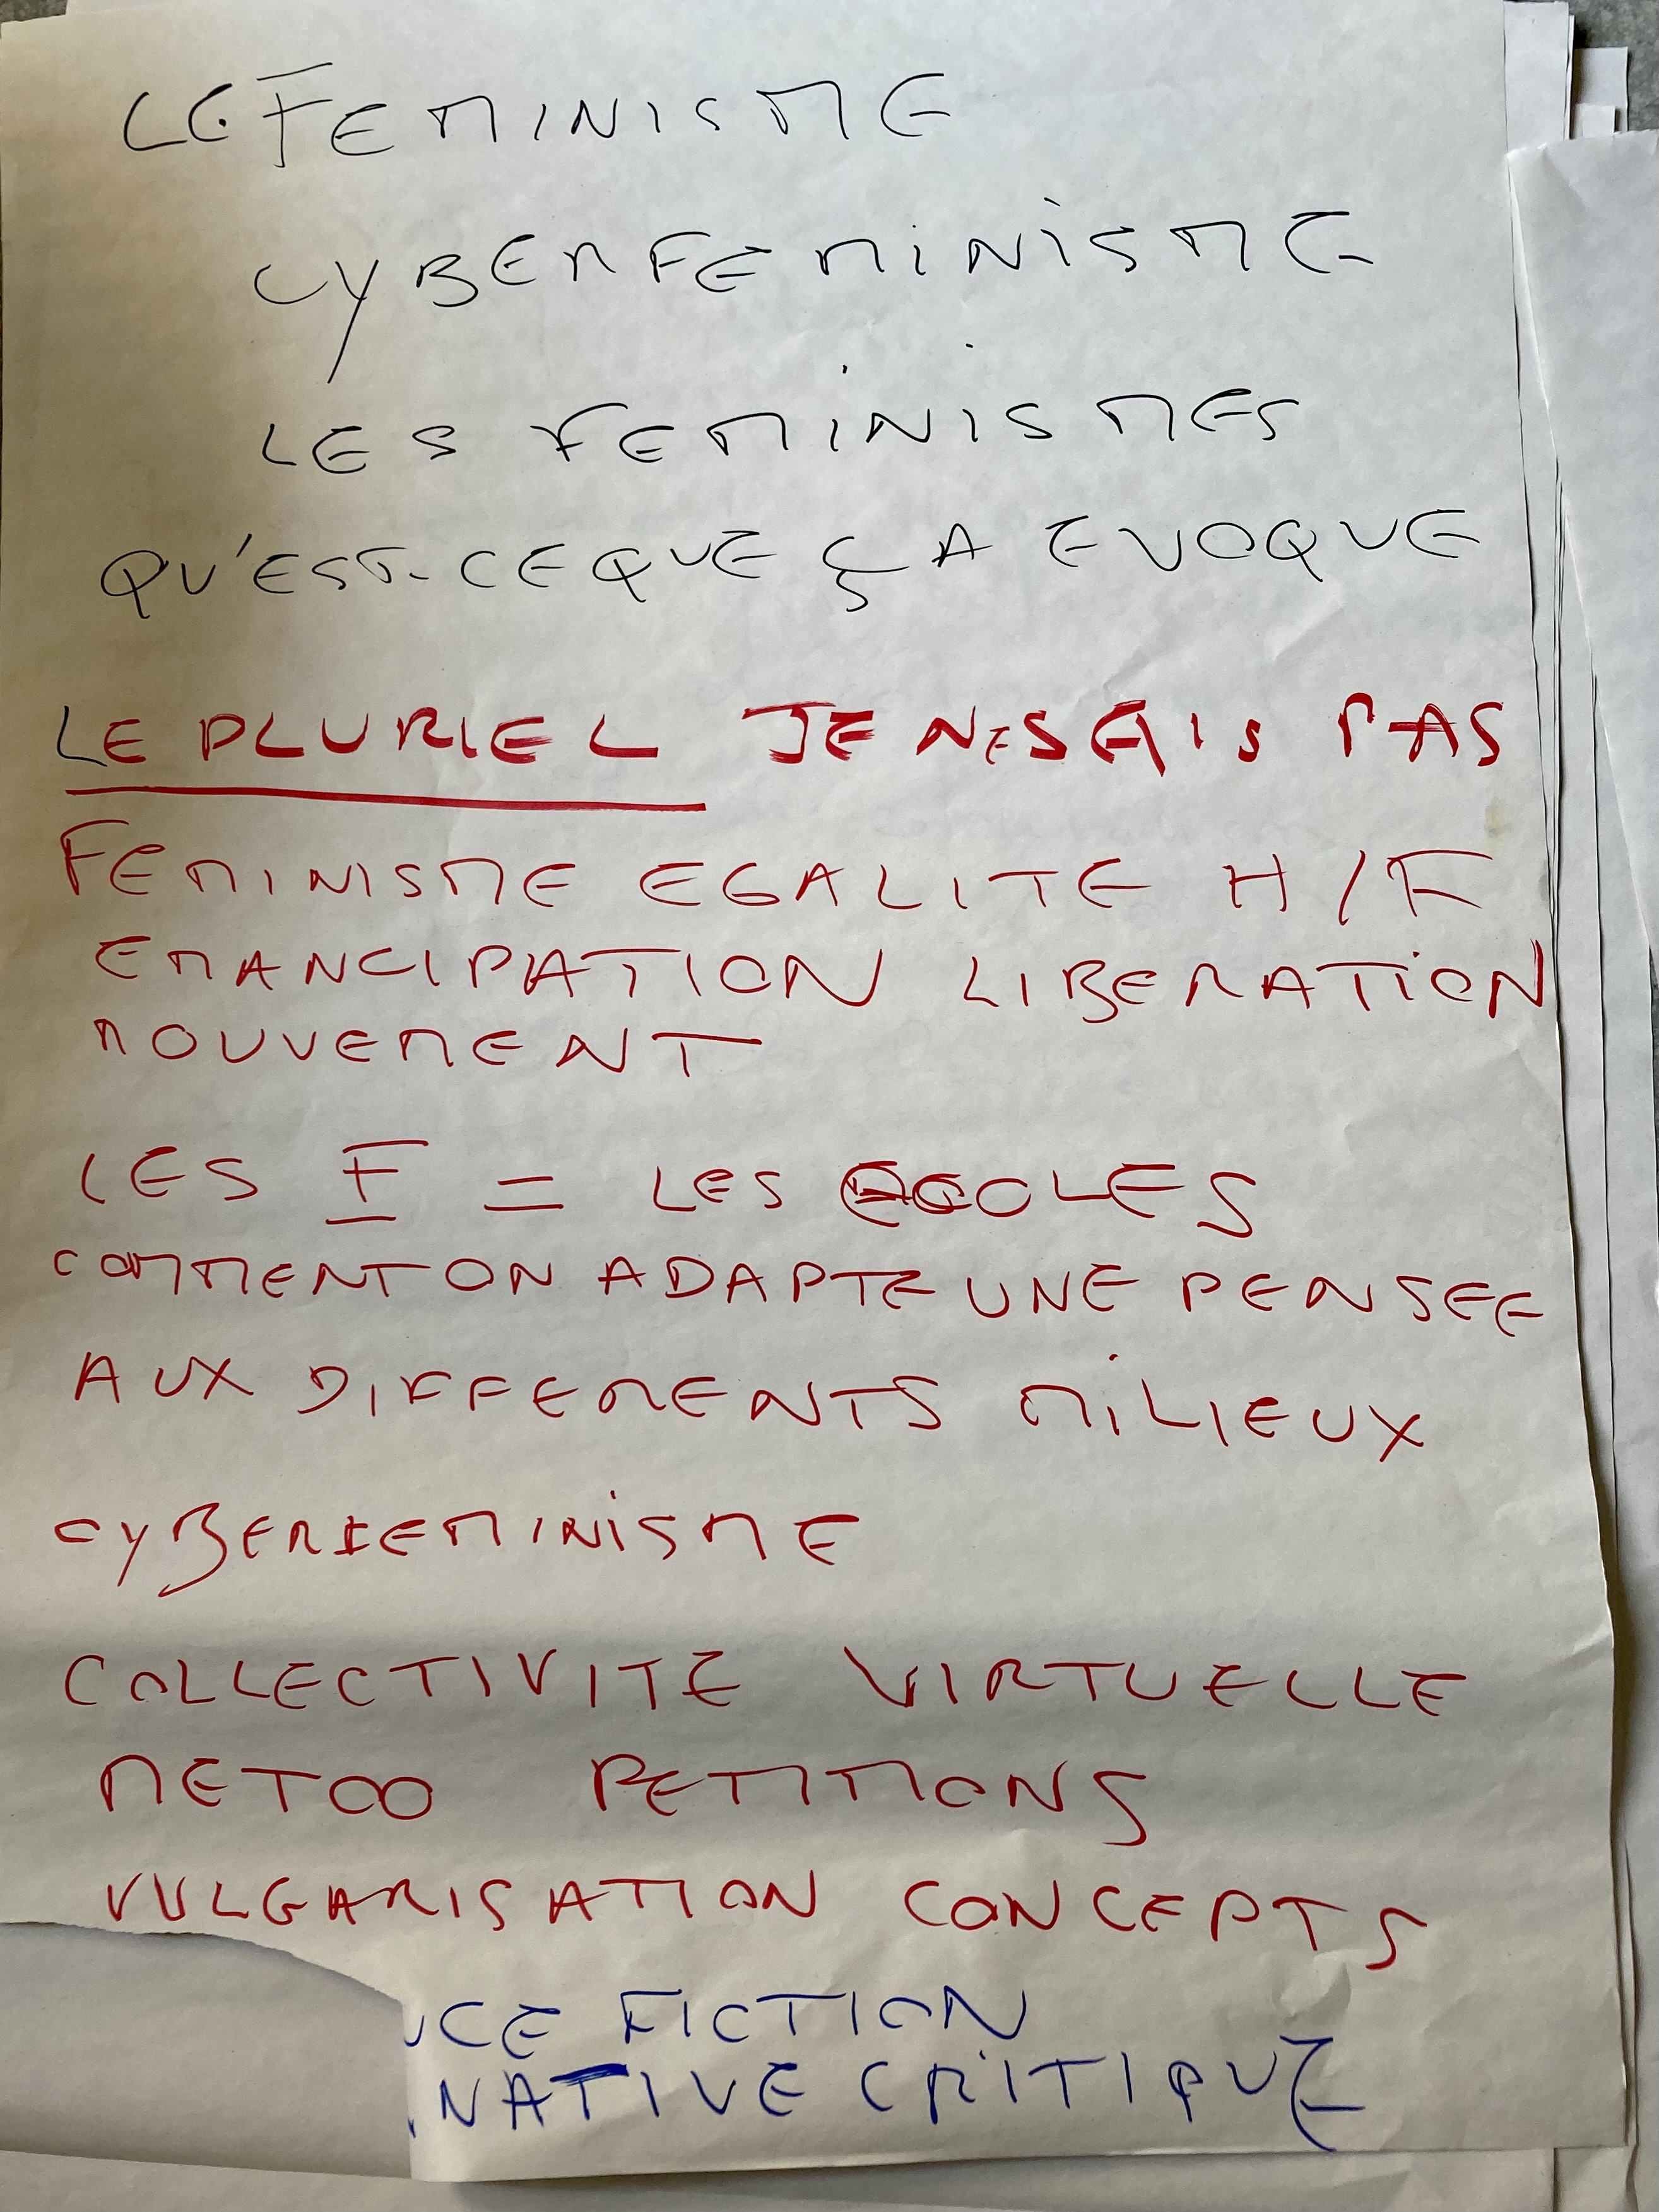 LE FEMINISME
CYBERFEMINISME
LES FEMINISMES
QU'EST-CE QUE ÇA EVOQUE
LE PLURIEL JE NE SAIS PAS
FEMINISME EGALITE H/F
EMANCIPATION LIBERATION
MOUVEMENT
LES F = LES ECOLES
COMMENT ON ADAPTE UNE PENSEE
AUX DIFFERENTS MILIEUX
CYBERFEMINISME
COLLECTIVITE VIRTUELLE
METOO PETITIONS
VULGARISATION CONCEPTS
CE FICTION
NATIVE CRITIQUE